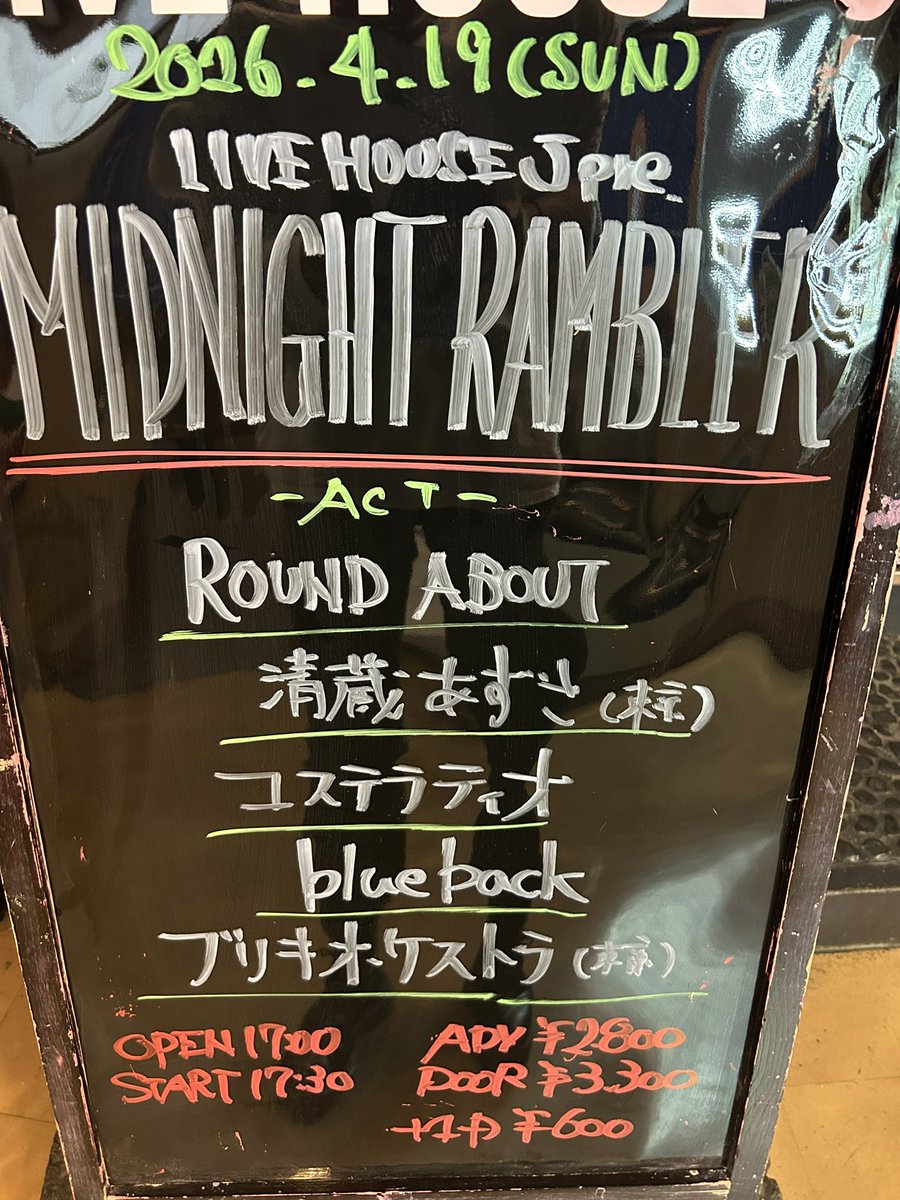 LIVE HOUSE J
2026.4.19(SUN)
LIVE HOUSE J pre
MIDNIGHT RAMBLER
-ACT-
ROUND ABOUT
清蔵あずさ(東京)
コステラティオ
blue back
ブリキオーケストラ(東京)
OPEN 17:00 ADV ¥2800
START 17:30 DOOR ¥3.300
+1D ¥600